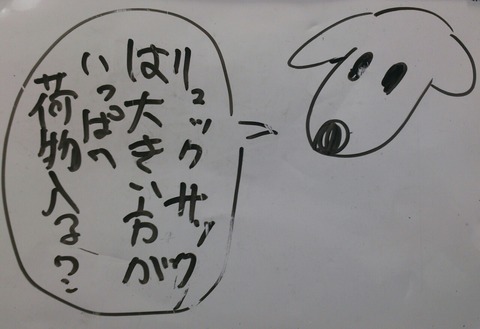 リュックサック
は大きい方が
いっぱい
荷物入る?